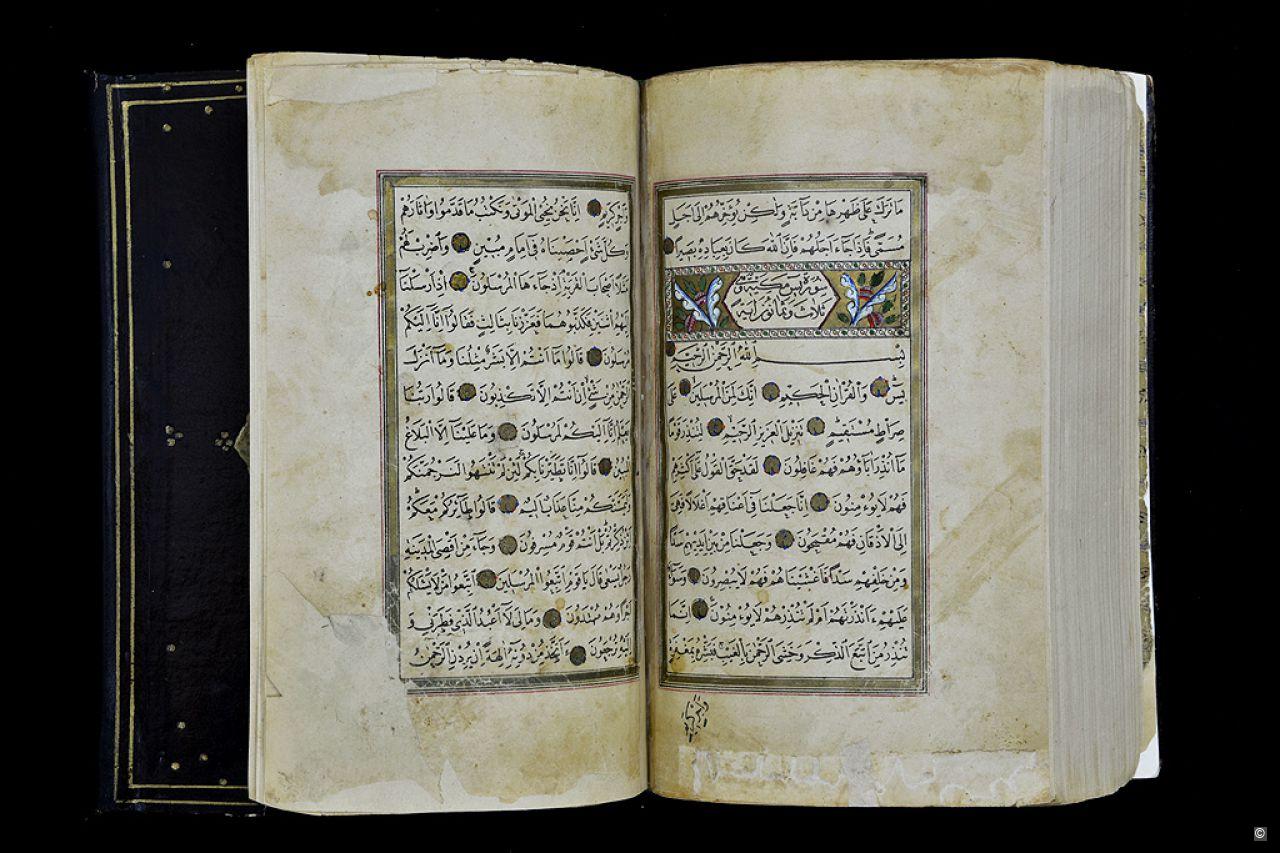 ما ترك على ظهرها من دابة ولكن يؤخرهم الى اجل
مسمى فاذا جاء اجلهم فان الله كان بعباده بصيرا
سورة يس مكية وهى
ثلاث وثمانون اية
بسم الله الرحمن الرحيم
يس والقران الحكيم انك لمن المرسلين على
صراط مستقيم تنزيل العزيز الرحيم لتنذر قوما
ما انذر اباؤهم فهم غافلون لقد حق القول على اكثرهم
فهم لا يؤمنون انا جعلنا فى اعناقهم اغلالا فهى
الى الاذقان فهم مقمحون وجعلنا من بين ايديهم سدا
ومن خلفهم سدا فاغشيناهم فهم لا يبصرون وسواء
عليهم ءانذرتهم ام لم تنذرهم لا يؤمنون انما
تنذر من اتبع الذكر وخشى الرحمن بالغيب فبشره بمغفرة
واجر كريم انا نحن نحيى الموتى ونكتب ما قدموا واثارهم
وكل شئ احصيناه فى امام مبين واضرب لهم
مثلا اصحاب القرية اذ جاءها المرسلون اذ ارسلنا
اليهم اثنين فكذبوهما فعززنا بثالث فقالوا انا اليكم
مرسلون قالوا ما انتم الا بشر مثلنا وما انزل
الرحمن من شئ ان انتم الا تكذبون قالوا ربنا
يعلم انا اليكم لمرسلون وما علينا الا البلاغ
المبين قالوا انا تطيرنا بكم لئن لم تنتهوا لنرجمنكم
وليمسنكم منا عذاب اليم قالوا طائركم معكم
ائن ذكرتم بل انتم قوم مسرفون وجاء من اقصى المدينة
رجل يسعى قال يا قوم اتبعوا المرسلين اتبعوا من لا يسئلكم
اجرا وهم مهتدون وما لى لا اعبد الذى فطرنى و
اليه ترجعون ءاتخذ من دونه الهة ان يردن الرحمن
©